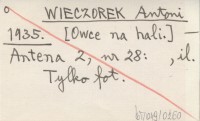 WIECZOREK Antoni
1935. [Owce na hali.] —
Antena 2, nr 28: , il.
Tylko fot.